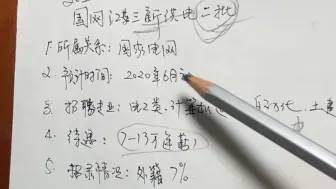 国网江苏三新供电二批
1. 所属关系：国家电网
2. 预计时间：2020年6月
3. 招聘专业：电工类、计算机
4. 待遇：（7-13万/年薪）
5. 报录情况：外籍 7%